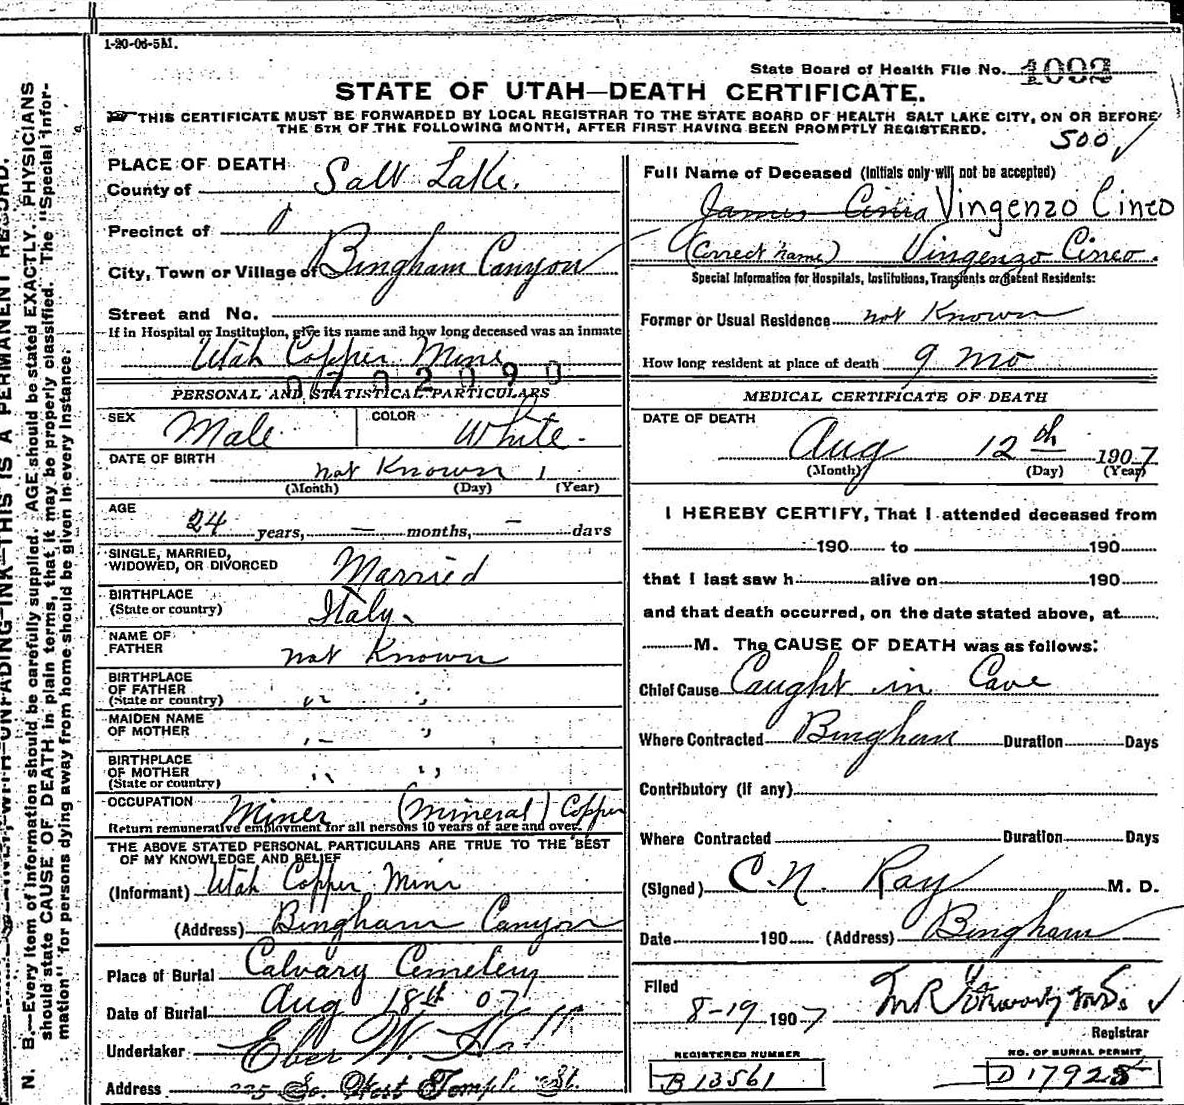 1-20-06-5M.
State Board of Health File No. 1092
STATE OF UTAH—DEATH CERTIFICATE.
THIS CERTIFICATE MUST BE FORWARDED BY LOCAL REGISTRAR TO THE STATE BOARD OF HEALTH SALT LAKE CITY, ON OR BEFORE
THE 5TH OF THE FOLLOWING MONTH, AFTER FIRST HAVING BEEN PROMPTLY REGISTERED.
500 ✓
PLACE OF DEATH
County of Salt Lake.
Precinct of
City, Town or Village of Bingham Canyon
Street and No.
If in Hospital or Institution, give its name and how long deceased was an inmate
Utah Copper Mine
0702090
PERSONAL AND STATISTICAL PARTICULARS
SEX Male COLOR White.
DATE OF BIRTH not Known 1
(Month) (Day) (Year)
AGE
24 years, — months, — days
SINGLE, MARRIED,
WIDOWED, OR DIVORCED Married
BIRTHPLACE
(State or country) Italy.
NAME OF
FATHER not Known
BIRTHPLACE
OF FATHER
(State or country) " "
MAIDEN NAME
OF MOTHER " "
BIRTHPLACE
OF MOTHER
(State or country) " "
OCCUPATION Miner (Mineral) Copper
Return remunerative employment for all persons 10 years of age and over.
THE ABOVE STATED PERSONAL PARTICULARS ARE TRUE TO THE BEST
OF MY KNOWLEDGE AND BELIEF
(Informant) Utah Copper Mine
(Address) Bingham Canyon
Place of Burial Calvary Cemetery
Date of Burial Aug 18th 07
Undertaker Eber W. Hall
Address 225 So. West Temple St.
Full Name of Deceased (Initials only will not be accepted)
James Cinia Vingenzo Cinco
(Correct name) Vingenzo Cinco.
Special Information for Hospitals, Institutions, Transients or Recent Residents:
Former or Usual Residence not Known
How long resident at place of death 9 mo
MEDICAL CERTIFICATE OF DEATH
DATE OF DEATH
Aug 12th 1907
(Month) (Day) (Year)
I HEREBY CERTIFY, That I attended deceased from
190 to 190
that I last saw h alive on 190
and that death occurred, on the date stated above, at
M. The CAUSE OF DEATH was as follows:
Chief Cause Caught in Cave
Where Contracted Bingham Duration Days
Contributory (if any)
Where Contracted Duration Days
(Signed) C.N. Ray M. D.
Date 190 (Address) Bingham
Filed
8-19 1907
Registrar
REGISTERED NUMBER
B 13561
NO. OF BURIAL PERMIT
D 17925
N. B.—Every item of information should be carefully supplied. AGE should be stated EXACTLY. PHYSICIANS
should state CAUSE OF DEATH in plain terms, that it may be properly classified. The "Special Infor-
mation" for persons dying away from home should be given in every instance.
WITH UNFADING INK—THIS IS A PERMANENT RECORD.